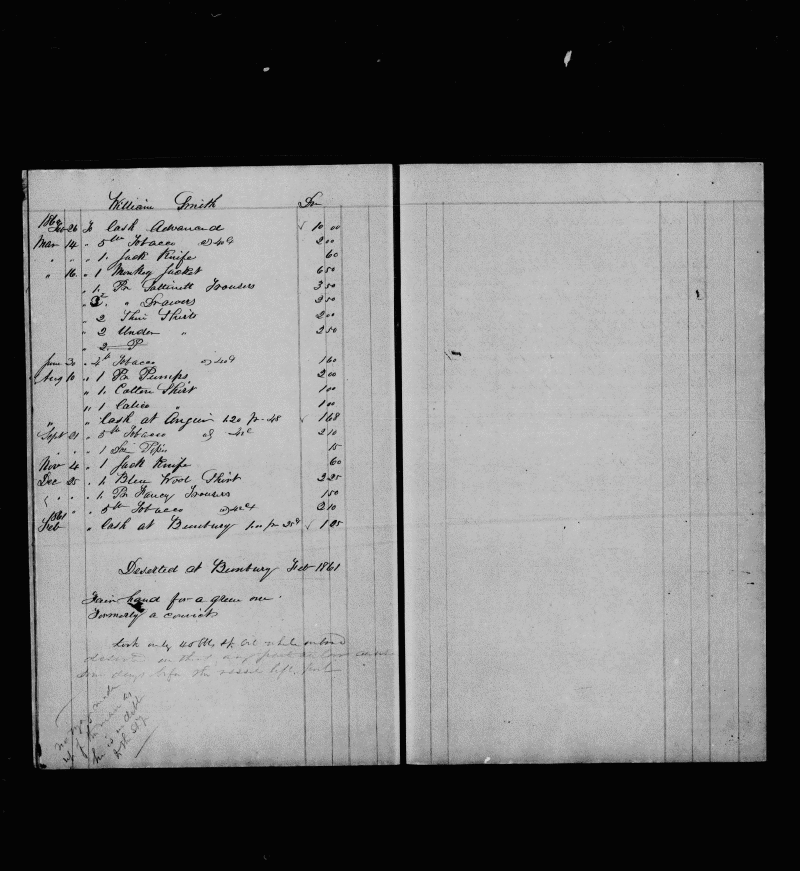 William Smith Dr
1860 Feb 26 To Cash Advanced √ 10 00
Mar 14 " 5 lbs Tobacco @ 40¢ 2 00
" " " 1 Jack Knife 60
" 16 " 1 Monkey Jacket 6 50
" 1 Pr Sattinett Trousers 3 50
" 2 " Drawers 2 50
" 2 Thin Shirts 2 00
" 2 Under " 2 50
" 2 P
June 30 " 4 lb Tobacco @ 40¢ 1 60
Aug 10 " 1 Pr Pumps 2 00
" 1 Cotton Shirt 1 00
" 1 Calico " 1 00
" " Cash at √ 1 68
Sept 21 " 5 lbs Tobacco @ 42¢ 2 10
" " " 1 15
Nov 4 " 1 Jack Knife 60
Dec 25 " 1 Blue Wool Shirt 2 25
" " " 1 Pr Fancy Trousers 1 50
" " 5 lbs Tobacco @ 42¢ 2 10
1861
Feb " Cash at Bunbury √ 1 05
Deserted at Bunbury Feb 1861
Fair hand for a green one.
Formerly a convict
only 40 lbs of while
in that any part
days before the vessel left port
no
he is in debt